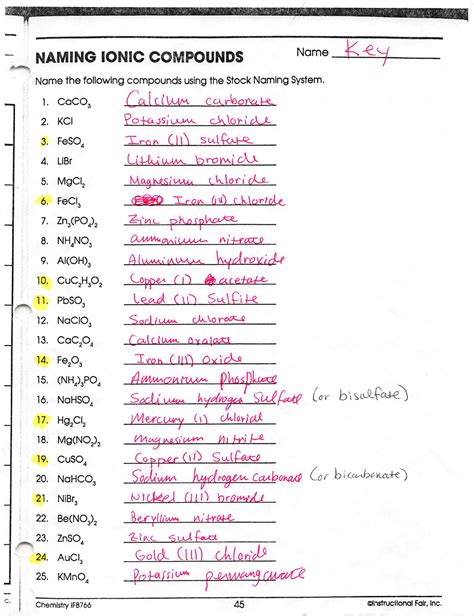 NAMING IONIC COMPOUNDS Name Key
Name the following compounds using the Stock Naming System.
1. CaCO₃ Calcium carbonate
2. KCl Potassium chloride
3. FeSO₄ Iron (II) sulfate
4. LiBr Lithium bromide
5. MgCl₂ Magnesium chloride
6. FeCl₃ Iron (III) chloride
7. Zn₃(PO₄)₂ Zinc phosphate
8. NH₄NO₃ ammonium nitrate
9. Al(OH)₃ Aluminum hydroxide
10. CuC₂H₃O₂ Copper (I) acetate
11. PbSO₃ Lead (II) Sulfite
12. NaClO₃ Sodium chlorate
13. CaC₂O₄ Calcium oxalate
14. Fe₂O₃ Iron (III) Oxide
15. (NH₄)₃PO₄ Ammonium phosphate
16. NaHSO₄ Sodium hydrogen Sulfate (or bisulfate)
17. Hg₂Cl₂ Mercury (I) chlorid
18. Mg(NO₂)₂ Magnesium Nitrite
19. CuSO₄ Copper (II) Sulfate
20. NaHCO₃ Sodium hydrogen carbonate (or bicarbonate)
21. NiBr₃ Nickel (III) bromide
22. Be(NO₃)₂ Beryllium nitrate
23. ZnSO₄ Zinc sulfate
24. AuCl₃ Gold (III) chloride
25. KMnO₄ Potassium permanganate
Chemistry IF8766 45 ©Instructional Fair, Inc.